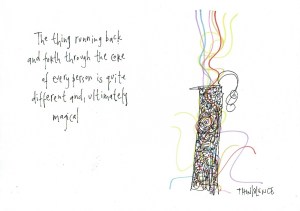 The thing running back
and forth through the core
of every person is quite
different and, ultimately
magical